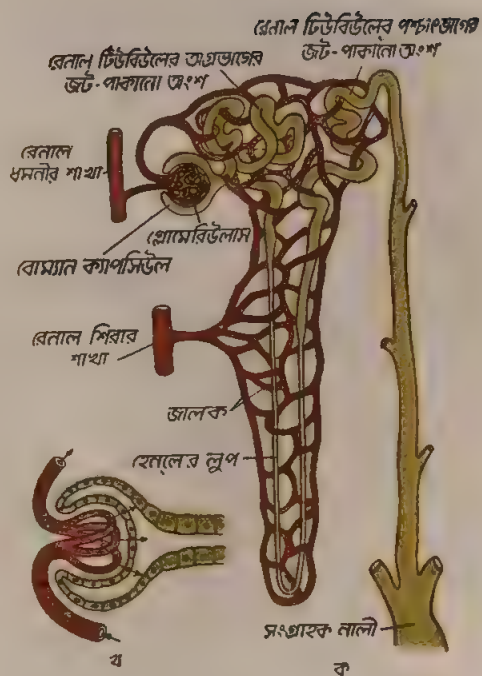 রেনাল টিউবিউলের পশ্চাৎভাগের
জট-পাকানো অংশ
রেনাল টিউবিউলের অগ্রভাগের
জট-পাকানো অংশ
রেনাল
ধমনীর শাখা
গ্লোমেরিউলাস
বোম্যান ক্যাপসিউল
রেনাল শিরার
শাখা
জালক
হেন্‌লের লুপ
সংগ্রাহক নালী
খ
ক